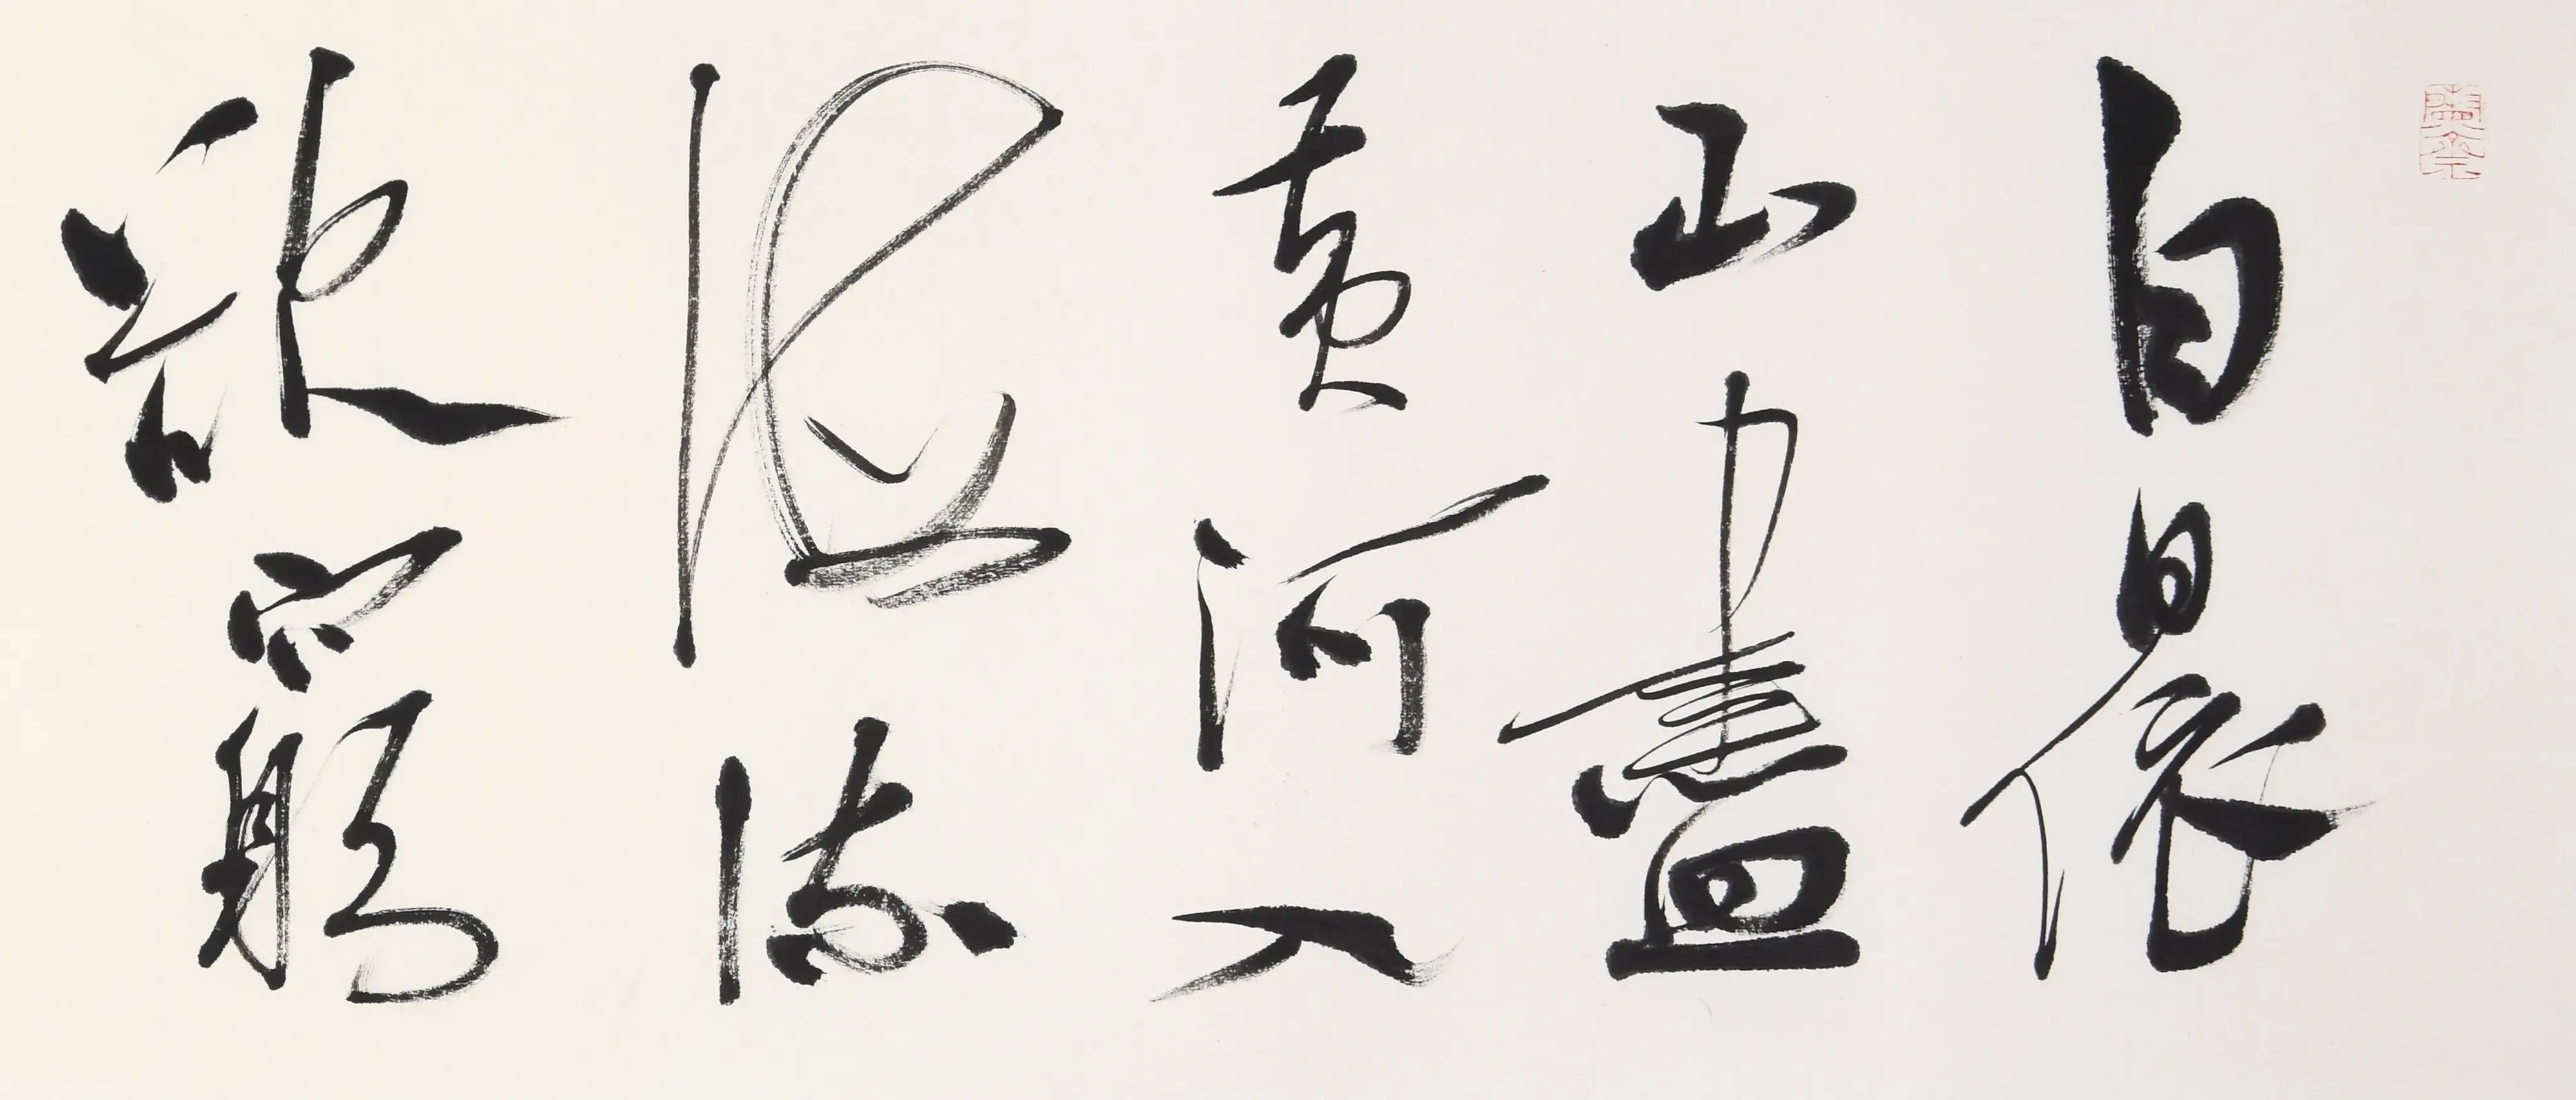 白日依
山盡
黃河入
海流
欲窮